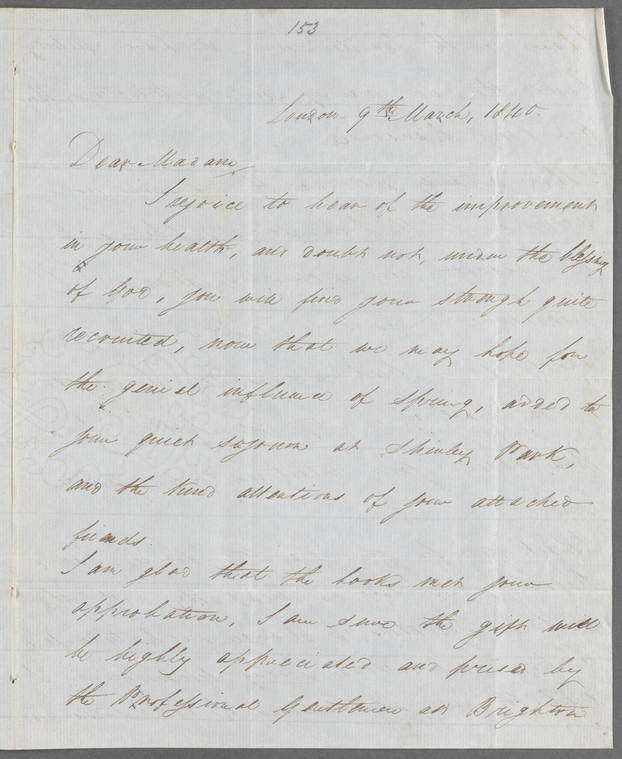 153
London 9th March, 1840.
Dear Madam,
I rejoice to hear of the improvement
in your health, and doubt not, under the blessing
of God, you will find your strength quite
recruited, now that we may hope for
the genial influence of spring, added to
your quiet sojourn at Shirley Park,
and the kind attentions of your attached
friends.
I am glad that the books met your
approbation, I am sure the gift will
be highly appreciated and prized by
the Professional Gentlemen at Brighton